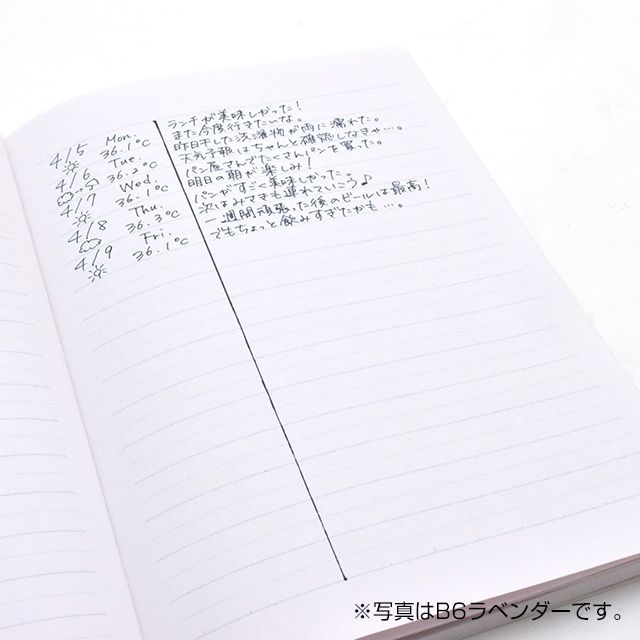 4/5 Mon. 36.1℃
4/6 Tue. 36.2℃
4/7 Wed. 36.1℃
4/8 Thu. 36.3℃
4/9 Fri. 36.1℃
ランチが美味しかった!
また今度行きたいな。
昨日干した洗濯物が雨に濡れた。
天気予報はちゃんと確認しなきゃ…。
パン屋さんでたくさんパンを買った。
明日の朝が楽しみ!
パンがすごく美味しかった。
次はみさきも連れていこう♪
一週間頑張った後のビールは最高!
でもちょっと飲みすぎたかも…。
※写真はB6ラベンダーです。